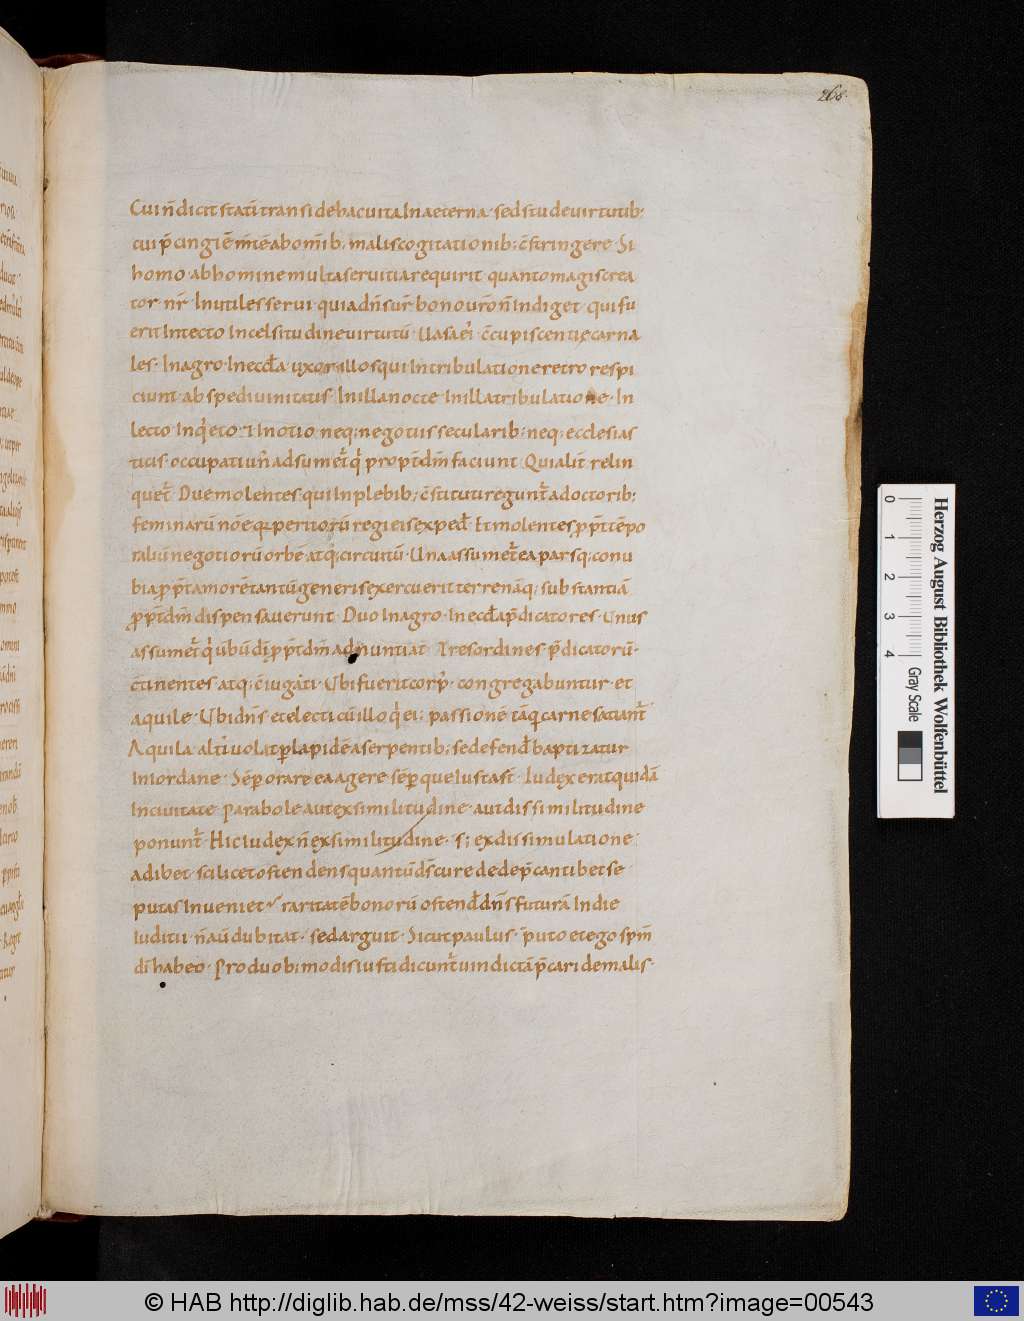 268.
Cui n̄ dicit statī transi de hac uita In aeterna. sed stude uirtutib;
cui p̄cingi ē m̄tē ab om̄ib; malis cogitationib; c̄stringere Si
homo ab homine multa seruitia requirit quanto magis crea
tor nr̄. Inutiles serui quia dn̄s ur̄ bono ur̄o n̄ Indiget qui fu
erit In tecto In celsitudine uirtutū. Uasa ei c̄cupiscentię carna
les. In agro In eccła uxor illos qui In tribulatione retro respi
ciunt ab spe diuinitatis In illa nocte In illa tribulatione. In
lecto In q̇eto. I In otio neq; negotiis secularib; neq; ecclesias
ticis occupati un̄ adsumet̄ q̇ propt̄ dm̄ faciunt Qui alit̄ relin
quet̄. Due molentes qui In plebib; c̄stituti regunt̄ a doctorib;
feminarū noēq; peritorū regi eis exped̄. Et molentes p̱pt̄ tēpo
raliū negotiorū orbē atq; circuitū. Una assumet̄ ea pars q; conu
bia p̱pt̄ amorē tantū generis exercuerit terrenāq; substantiā
p̱pt̄ dm̄ dispensauerunt. Duo In agro. In eccła p̄dicatores. Unus
assumet̄ q̇ ūbū di p̱pt̄ dm̄ adnuntiat Tres ordines p̄dicatorū.
c̄tinentes atq; c̄iugati. Ubi fuerit corp̄. congregabuntur et
aquile. Ubi dn̄s et electi cū illo q̇ ei; passionē tāq̄ carne satiant̄
Aquila alti uolat p̱ lapidē a serpentib; se defend̄ baptizatur
In Iordane. Sēp̱ orare ea agere sēp̱ que Iusta st̄. Iudex erat quidā
In ciuitate parabole aut ex similitudine aut dissimilitudine
ponunt̄. Hic Iudex n̄ ex similitudine. s; ex dissimulatione
adibet scilicet ostendens quantū d̄s cure de dep̄cantibet se
putas Inueniet raritatē bonorū ostend̄ dn̄s futurā In die
Iuditii n̄ aū dubitat. sed arguit. Sicut paulus. puto et ego spm̄
di habeo. Pro duobi modis iusti dicunt̄ uindictā p̄cari de malis.
0
1
2
3
4
Gray Scale
Herzog August Bibliothek Wolfenbüttel
© HAB http://diglib.hab.de/mss/42-weiss/start.htm?image=00543